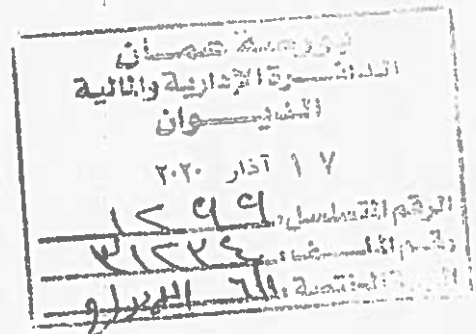 بورصة عمان
الدائرة الإدارية والمالية
الديوان
١٧ آذار ٢٠٢٠
الرقم المتسلسل: ١٢٩٩
رقم الملف: ٣١٢٢٤
الجهة المختصة: